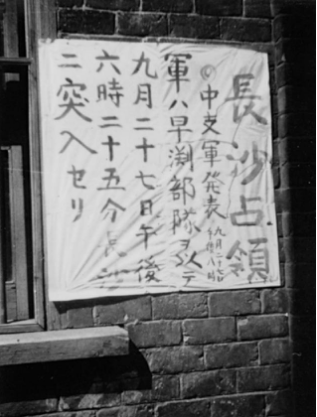 長沙占領
中支軍發表
軍ハ早渕部隊ヲ以テ
九月二十七日午後
六時二十五分長沙
ニ突入セリ